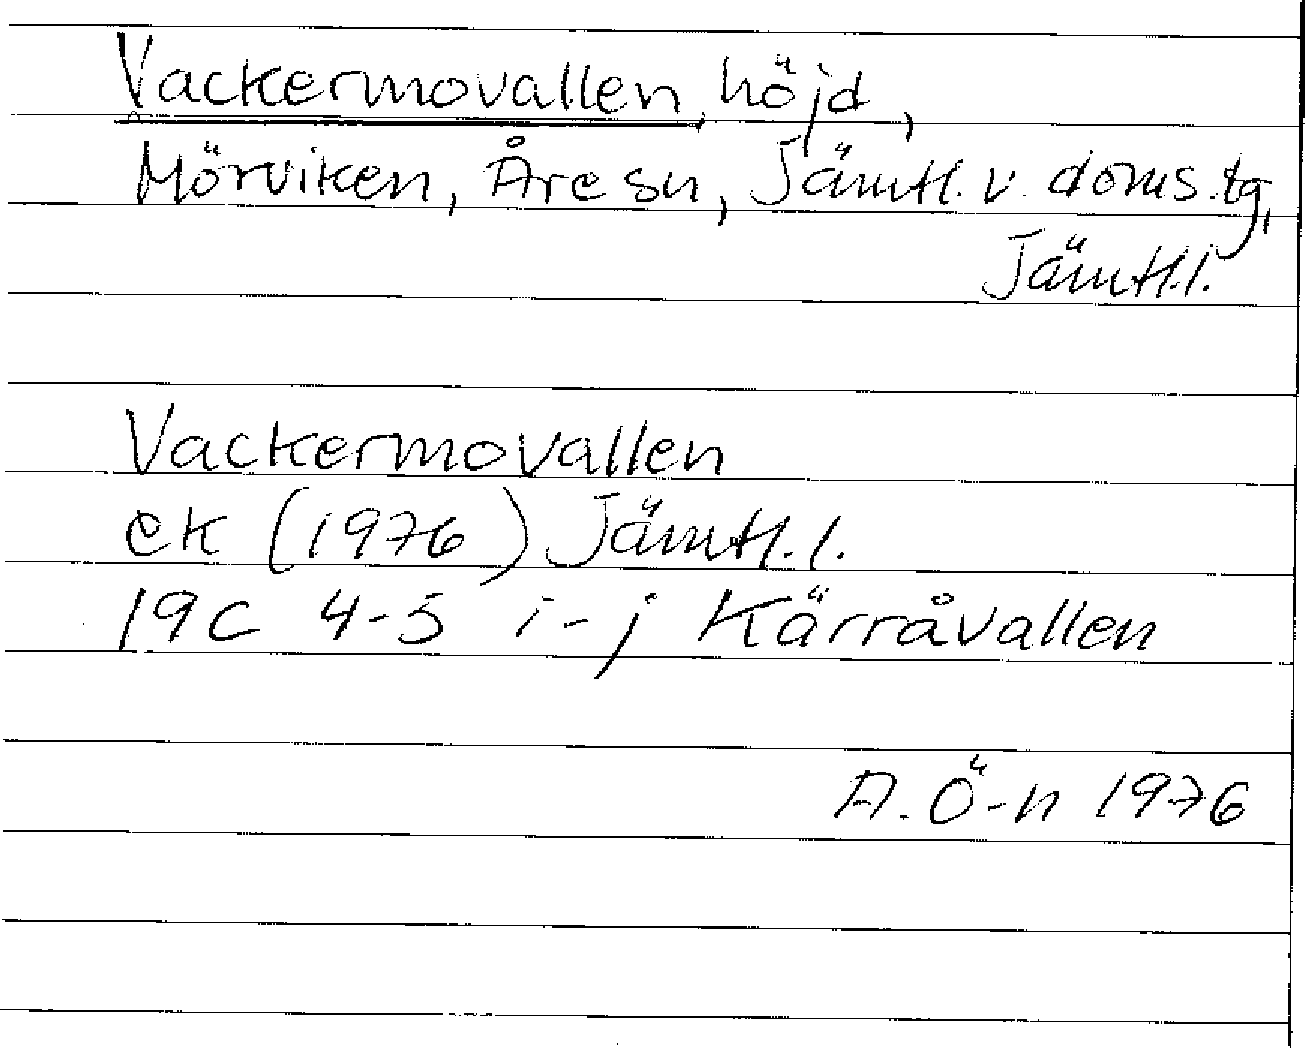 Vackermovallen, höjd,
Mörviken, Åre sn, Jämtl. v. doms.tg,
Jämtl.l.
Vackermovallen
ek (1976) Jämtl.l.
19C 4-5 i-j Kärråvallen
A. Ö-n 1976